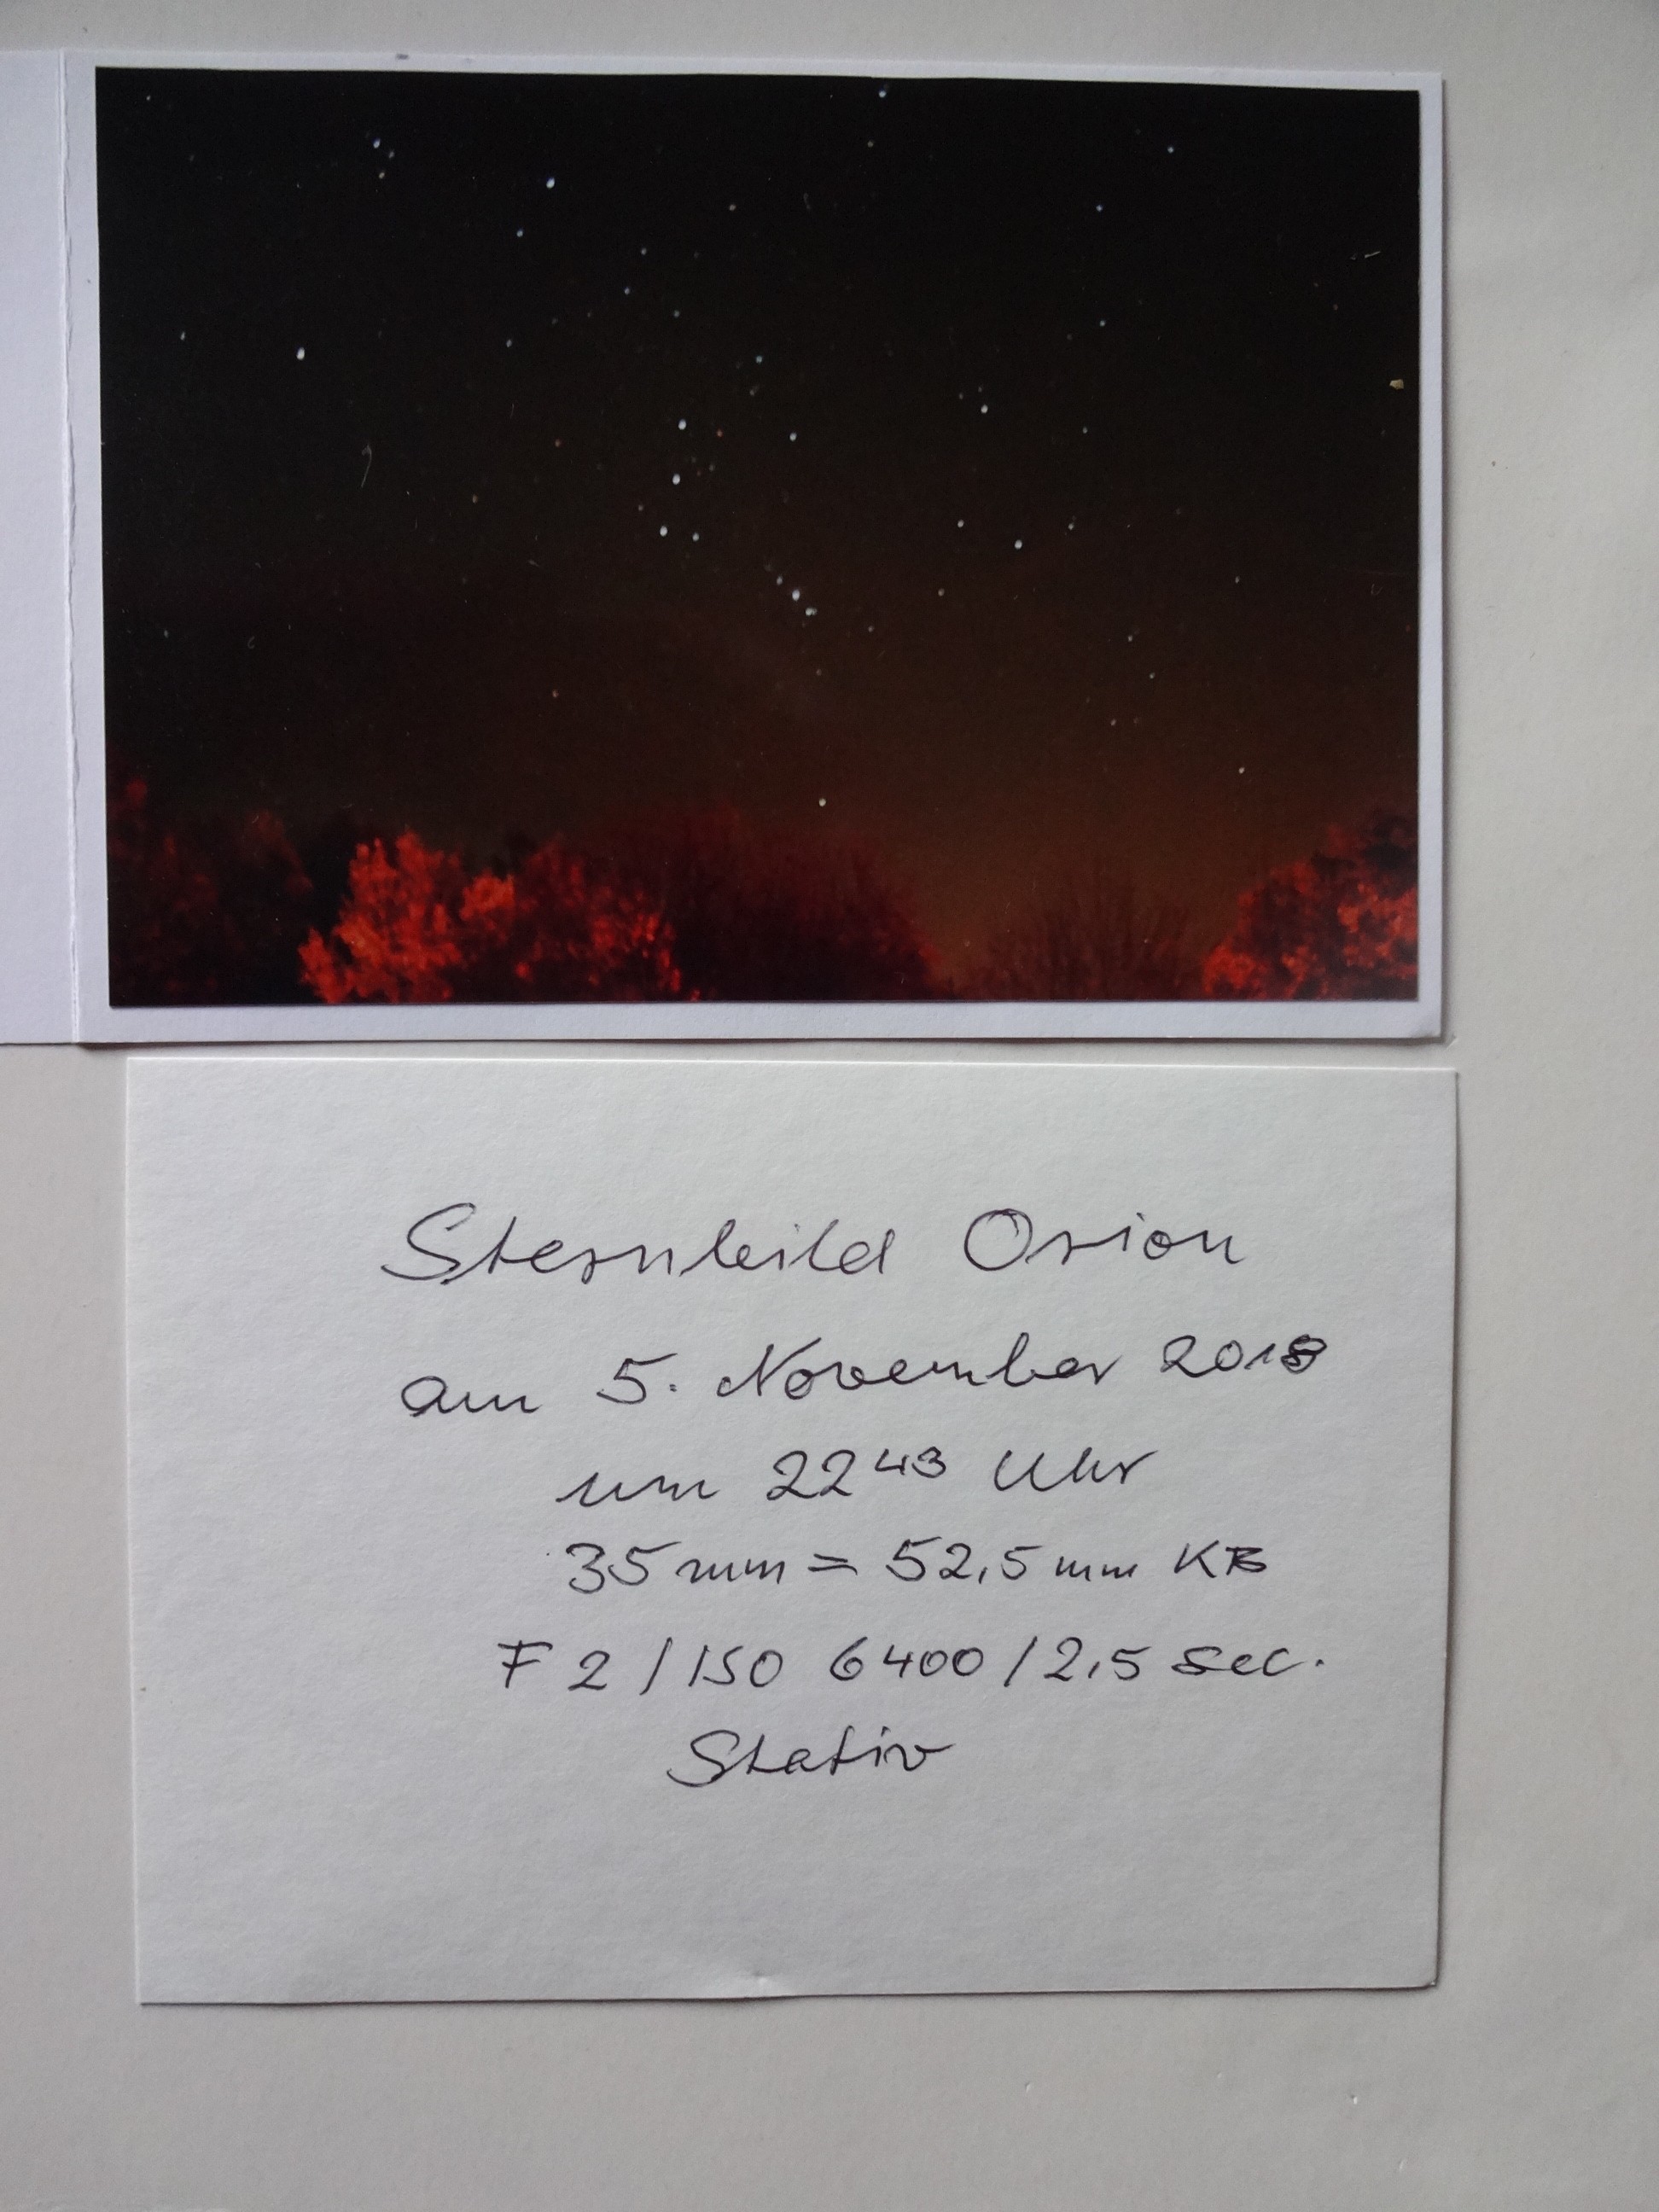 Sternbild Orion
am 5. November 2018
um 22⁴³ Uhr
35 mm = 52,5 mm KB
F 2 / ISO 6400 / 2,5 sec.
Stativ